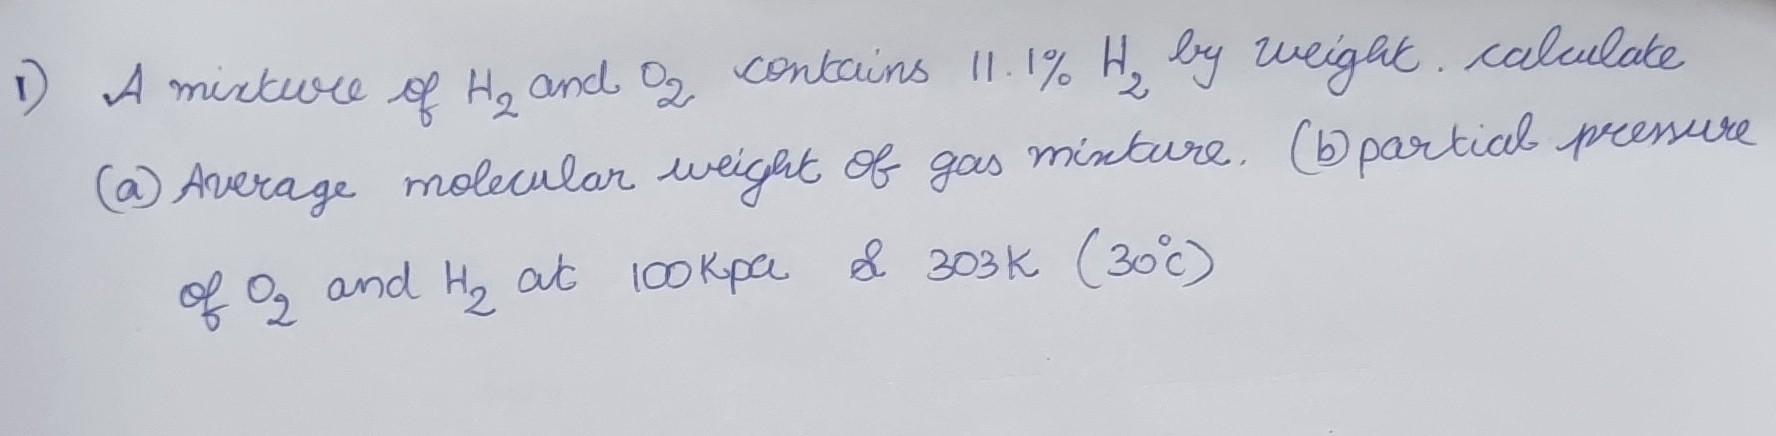 1) A mixture of H₂ and O₂ contains 11.1% H₂ by weight. calculate
(a) Average molecular weight of gas mixture. (b) partial pressure
of O₂ and H₂ at 100Kpa & 303K (30°c)